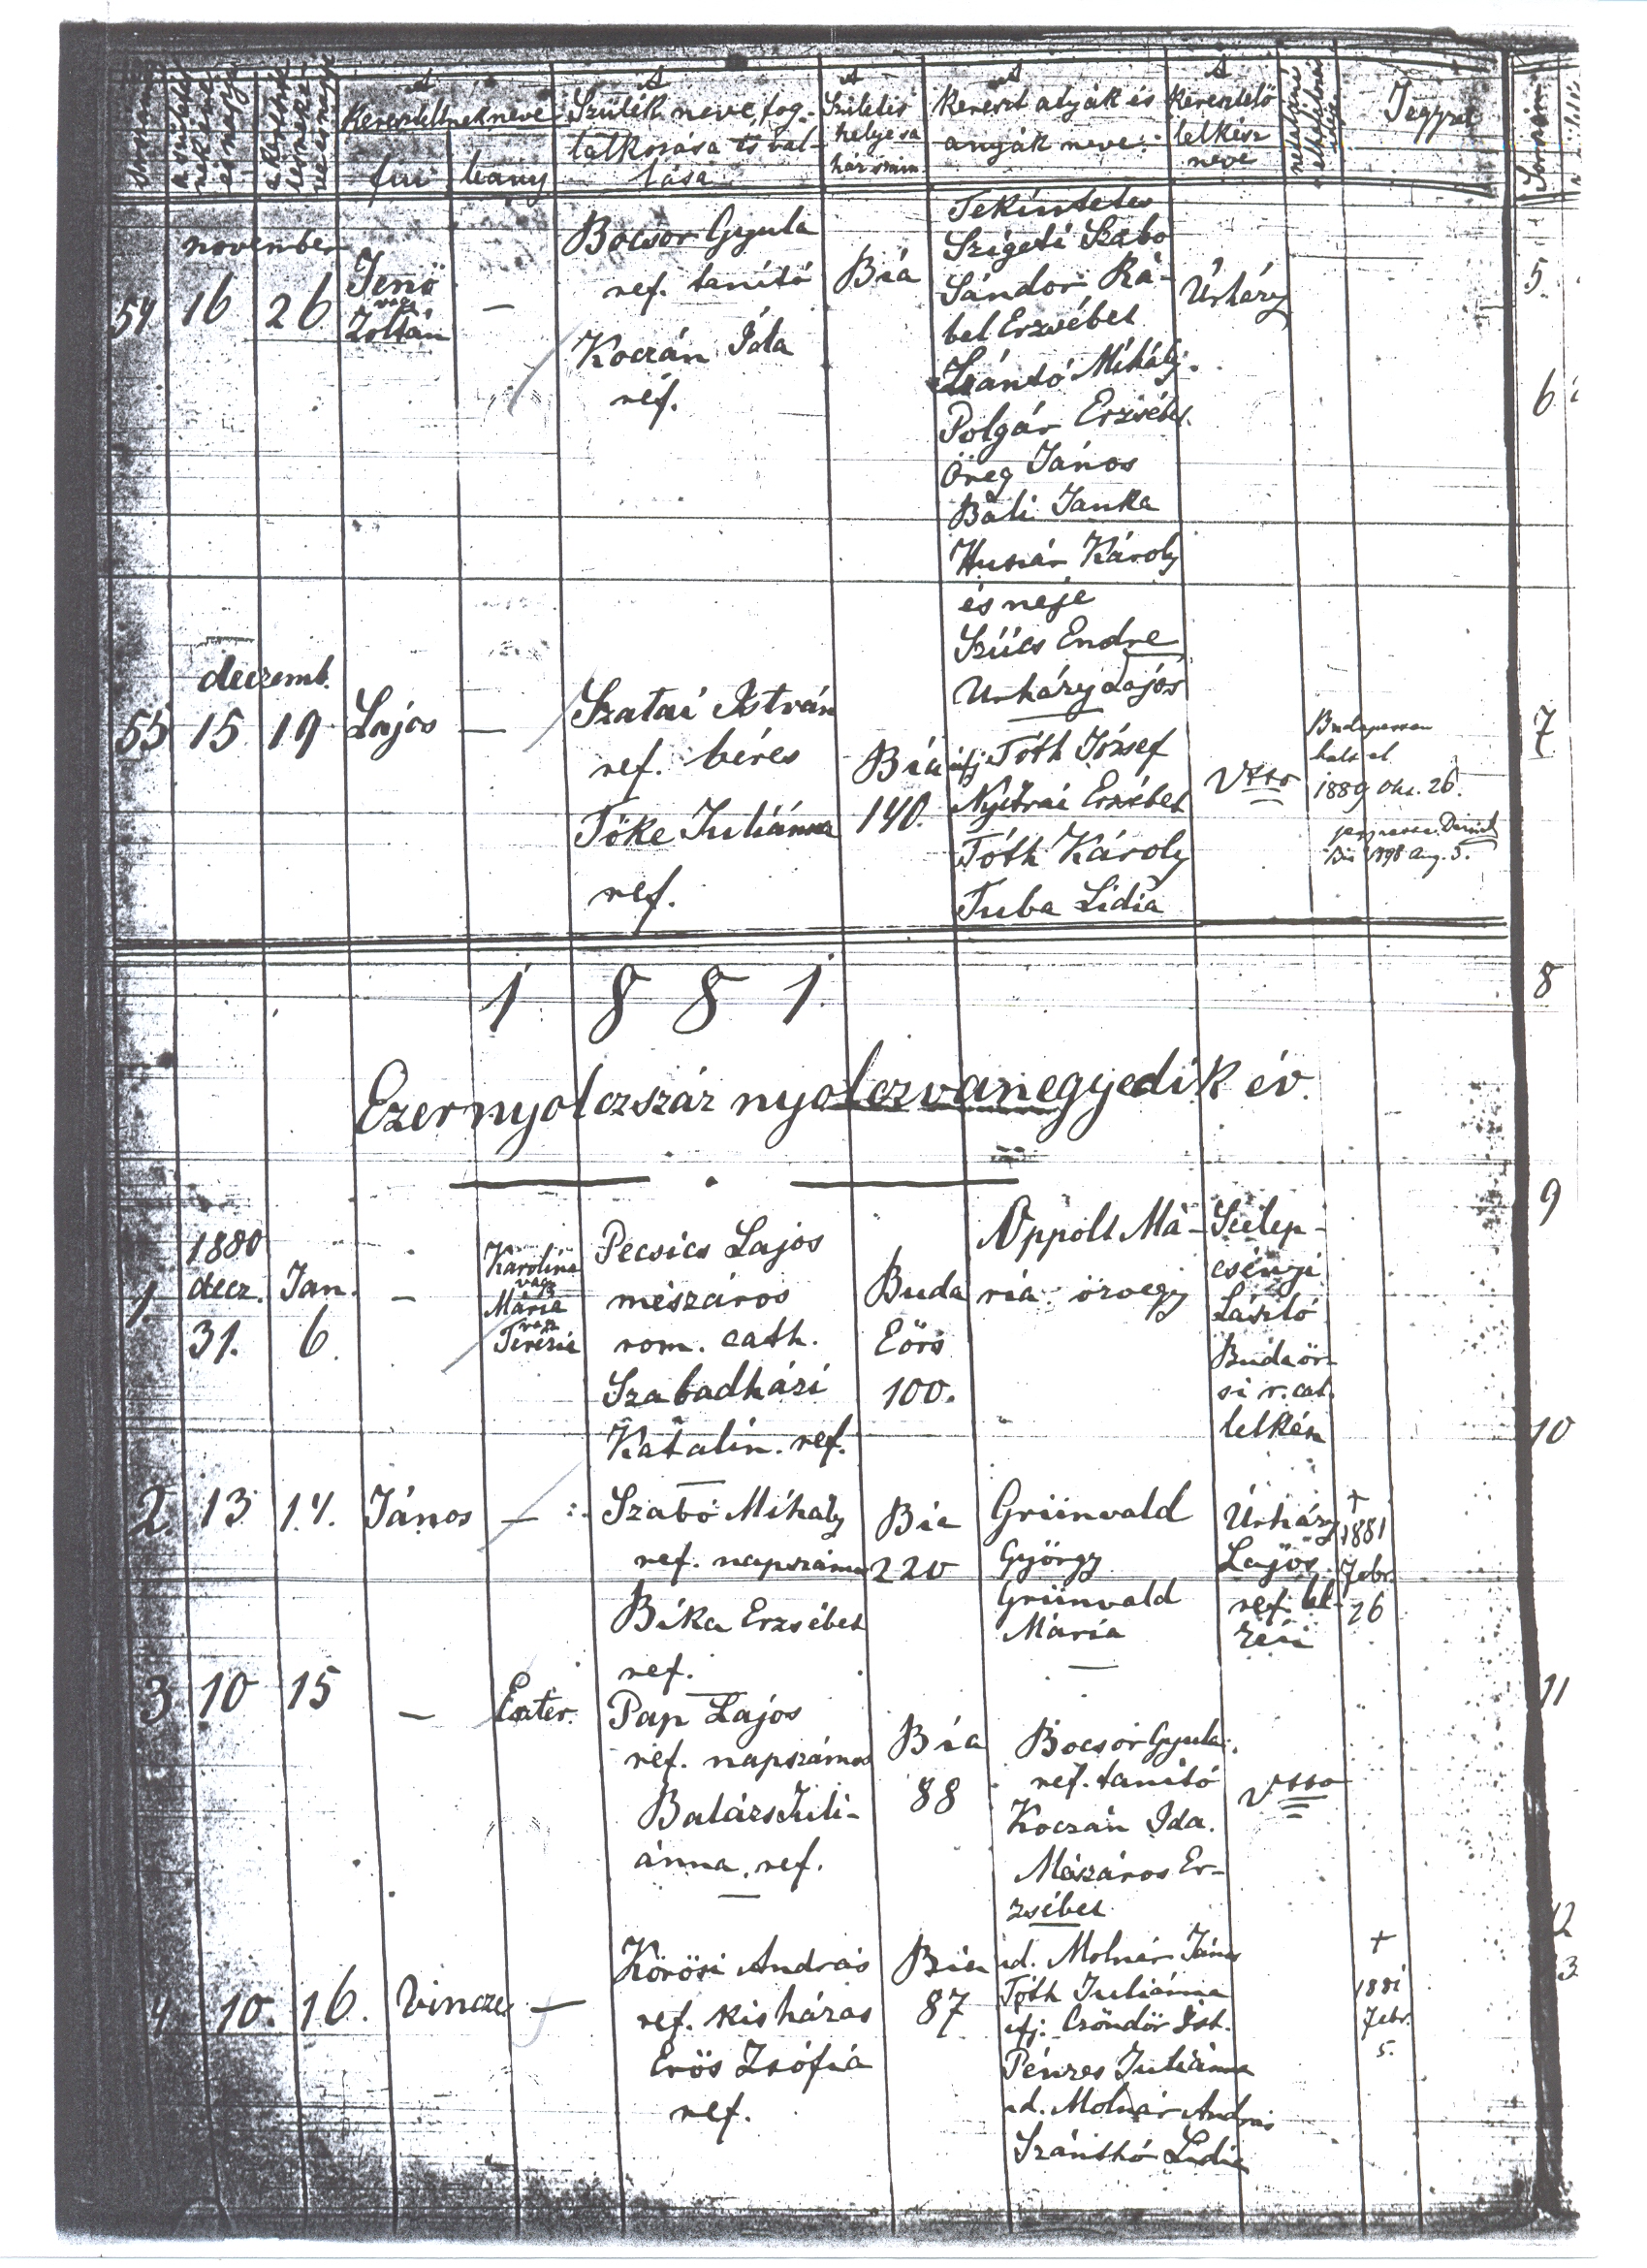 A
Kereszteltnek neve
fiu
leány
A
Szülék neve, fog-
lalkozása és val-
lása
A
Születés
helye s a
házszám
A
kereszt atyák és
anyák neve:
A
keresztelő
lelkész
neve
Jegyzet
november
54 16 26
Jenő
vagy
Zoltán
—
Bocsor Gyula
ref. tanító
Koczán Ida
ref.
Bia
Tekintetes
Szigeti Szabo
Sándor Rá-
bel Erzsébet
Szántó Mihály
Polgár Erzsébet
Öreg János
Báli Janka
Huszár Károly
és neje
Szűcs Endre
Urházy Lajos
Úrházy
deczemb.
55 15 19 Lajos —
Szatai István
ref. béres
Tőke Juliánna
ref.
Bia
140.
ifj Tóth József
Nyitrai Erzsébet
Tóth Károly
Tuba Lidia
Usso
Budapesten
halt el
1889 Okt. 26.
1881.
Ezernyolczszáz nyolczvanegyedik év.
1.
1880
decz.
31.
Jan.
6.
—
Karolina
vagy
Mária
vagy
Terézia
Pecsics Lajos
mészáros
rom. cath.
Szabadházi
Katalin. ref.
Buda
Eörs
100.
Oppolt Má-
ria özvegy
Szelep-
csényi
László
Budaör-
si r. cat.
lelkész
2. 13 14. János —
Szabó Mihály
ref. napszámos
Bika Erzsébet
ref.
Bia
220
Grünvald
György
Grünvald
Mária
Úrházy
Lajos
ref. lel-
†
1881
Febr.
26
3 10 15 — Eszter.
Pap Lajos
ref. napszámos
Balázs Juli-
ánna. ref.
Bia
88
Bocsor Gyula
ref. tanító
Koczán Ida.
Mészáros Er-
zsébet
Usso
4. 10. 16. Vincze —
Körösi András
ref. kisházas
Erős Zsófia
ref.
Bia
87
id. Molnár János
Tóth Juliánna
ifj. Czöndör Ist.
Pénzes Juliánna
id. Molnár András
Szánthó Lidia
†
1881
Febr.
5.
5.
6
7
8
9
10
11
12